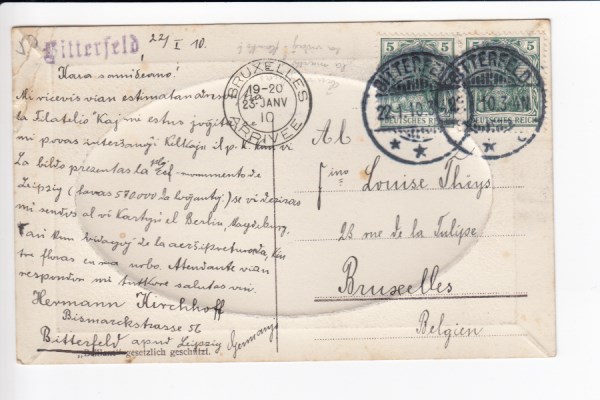 Bitterfeld
22/I 10.
Kara samideano!
Mi ricevis vian estimatan adreson
la Filatelio Kaj mi estus
mi povas interŝanĝi Kelkajn il. p. k. kun vi
La bildo prezentas la monumento de
Leipzig (havas 570.000 da loĝantoj) se vi deziras
mi sendos al vi Kartojn el Berlin, Magdeburg,
de la aerŝipveturado, kiu
tre floras en mia nobo. Atendante vian
respondon mi tutkore salutas vin.
Hermann Kirchhoff
Bismarckstrasse 56
Bitterfeld apud Leipzig Germany
gesetzlich geschützt.
BRUXELLES
19-20
23 JANV
10
ARRIVEE
5 5
5 5
BITTERFELD
22.1.10.3-4N
DEUTSCHES REICH
BITTERFELD
10.3-4N
DEUTSCHES REICH
Al
fino Louise Thijs
23 rue de la Tulipe
Bruxelles
Belgien